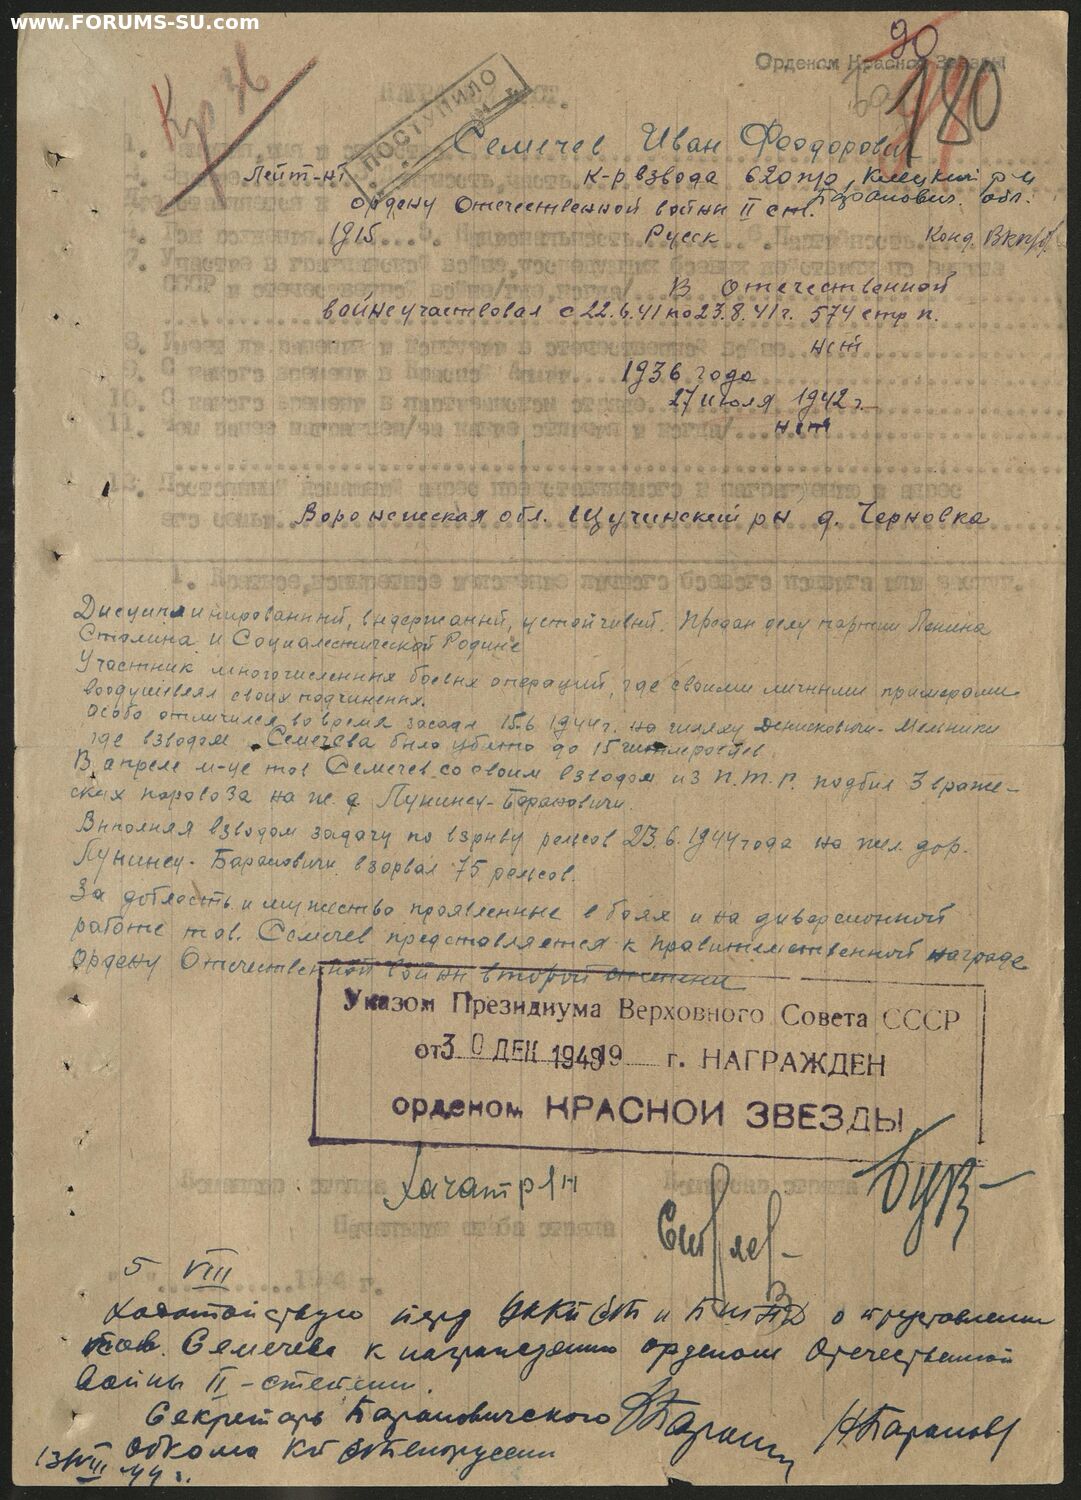 www.FORUMS-SU.com
90
Орденом Красной Звезды
180
Кр Зв
ПОСТУПИЛО
Семечев Иван Феодорович
Лейт-нт к-р взвода 620 п/о, Клецкий р-н
Баранович. обл.
ордену Отечественной войны II ст.
4. Год рождения 1915 5. Национальность Русск 6. Партийность Конд. ВКП(б)
7. Участие в гражданской войне, последующих боевых действиях по защите
СССР и отечественной войне В Отечественной
войне участвовал с 22.6.41 по 23.8.41 г. 574 стр п.
8. нет
9. С какого времени в Красной Армии 1936 года
10. С какого времени в партизанском отряде 27 июля 1942 г.
11. Чем ранее награжден/за какие отличия и когда/ нет
12. Постоянный домашний адрес представляемого к награждению и адрес
его семьи Воронежская обл. Щучинский рн д. Черновка
1. Краткое, конкретное изложение личного боевого подвига или заслуг.
Дисциплинированный, выдержаный, устойчивый. Предан делу партии Ленина
Сталина и Социалестической Родине
Участник многочисленных боевых операций, где своими личными примерами
воодушевлял своих подчиненых.
Особо отличился во время засады 15.6 1944 г. на шляху Денисковичи-Мельники
где взводом Семечева было убито до 15 гитлеровцев
В апреле м-це тов Семечев со своим взводом из П.Т.Р. подбил 3 враже-
ских паровоза на ж. д Лунинец-Барановичи.
Выполняя взводом задачу по взрыву рельсов 23.6.1944 года на жел. дор.
Лунинец-Барановичи взорвал 75 рельсов.
За доблесть и мужество проявленные в боях и на диверсионной
работе тов. Семечев представляется к правительственной награде
ордену Отечественной войны второй степени
Указом Президиума Верховного Совета СССР
от 30 ДЕК 1949 19 г. НАГРАЖДЕН
орденом КРАСНОЙ ЗВЕЗДЫ
Командир отряда Хачатрян Комиссар отряда
Начальник штаба отряда
5 VIII
Ходатайствую перд ЦККП(б)Б и БШПД о представлении
тов. Семечева к награждению орденом Отечественной
Войны II-степени.
Секретарь Барановичского
Обкома КП(б)Белоруссии
13/VIII 44 г.